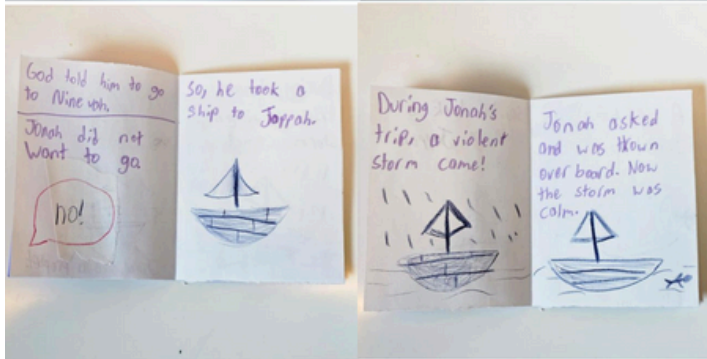 God told him to go
to Nineveh.
Jonah did not
want to go.
no!
So, he took a
ship to Joppah.
During Jonah's
trip, a violent
storm came!
Jonah asked
and was thown
over board. Now
the storm was
calm.